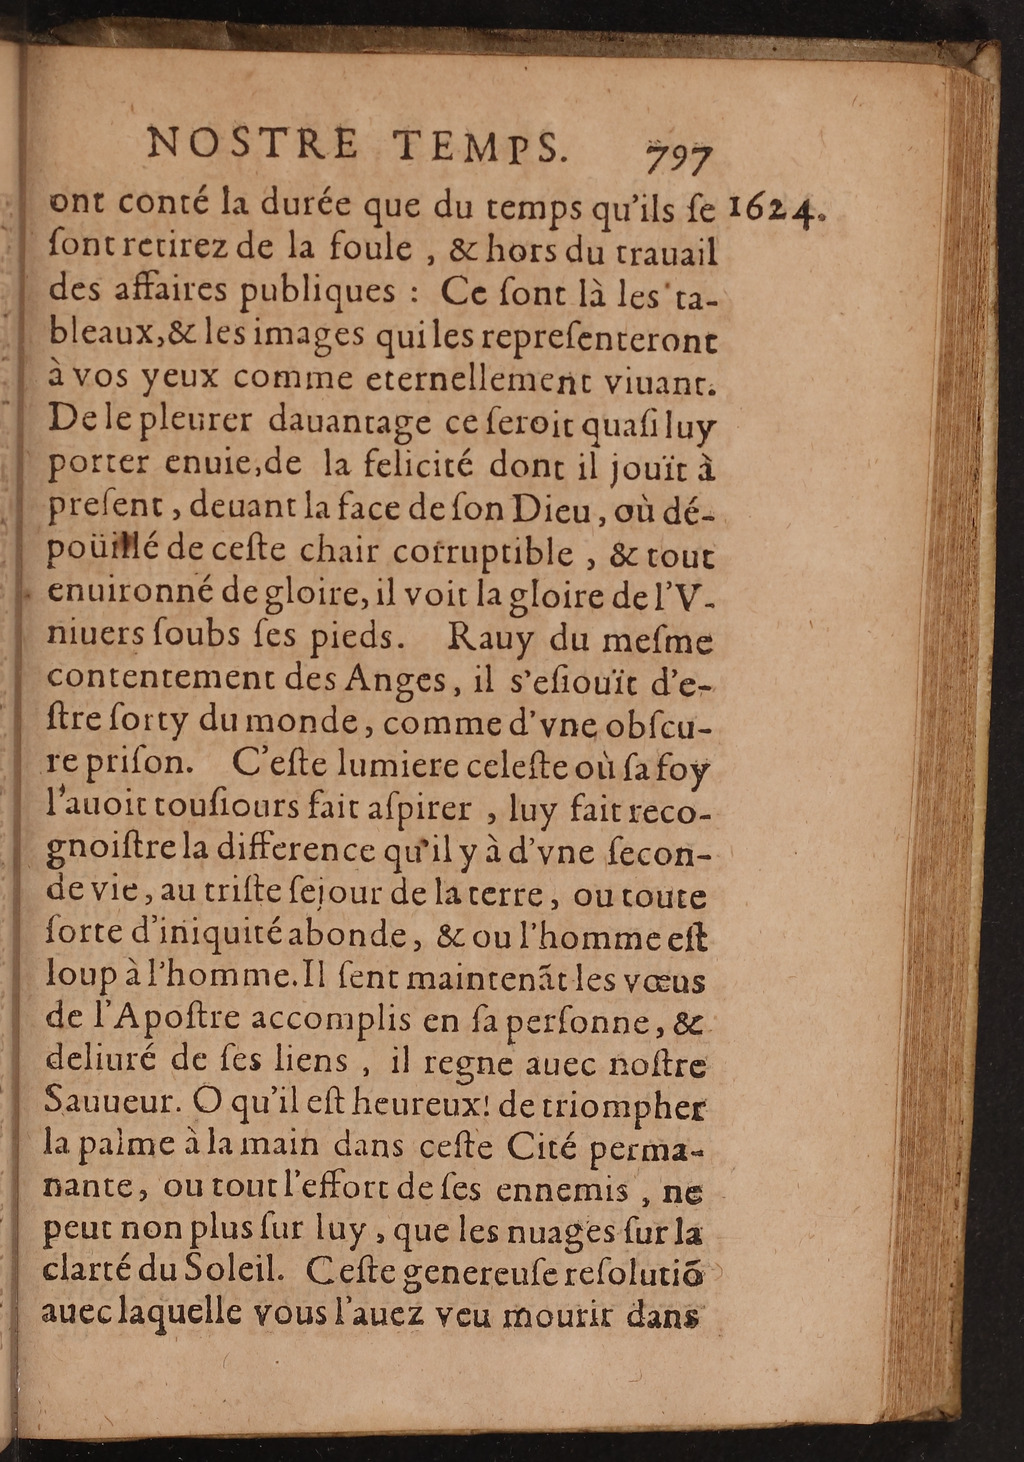 NOSTRE TEMPS. 797
ont conté la durée que du temps qu'ils ſe 1624.
ſont retirez de la foule , & hors du trauail
des affaires publiques : Ce ſont là les ta-
bleaux,& les images qui les repreſenteront
à vos yeux comme eternellement viuant.
De le pleurer dauantage ce ſeroit quaſi luy
porter enuie,de la felicité dont il jouït à
preſent , deuant la face de ſon Dieu , où dé-
poüillé de ceſte chair corruptible , & tout
enuironné de gloire, il voit la gloire de l'V-
niuers ſoubs ſes pieds. Rauy du meſme
contentement des Anges, il s'eſiouït d'e-
ſtre ſorty du monde, comme d'vne obſcu-
re priſon. C'eſte lumiere celeſte où ſa foy
l'auoit touſiours fait aſpirer , luy fait reco-
gnoiſtre la difference qu'il y à d'vne ſecon-
de vie, au triſte ſejour de la terre, ou toute
ſorte d'iniquité abonde, & ou l'homme eſt
loup à l'homme. Il ſent maintenãt les vœus
de l'Apoſtre accomplis en ſa perſonne, &
deliuré de ſes liens , il regne auec noſtre
Sauueur. O qu'il eſt heureux! de triompher
la palme à la main dans ceſte Cité perma-
nante, ou tout l'effort de ſes ennemis , ne
peut non plus ſur luy , que les nuages ſur la
clarté du Soleil. Ceſte genereuſe reſolutiõ
auec laquelle vous l'auez veu mourir dans